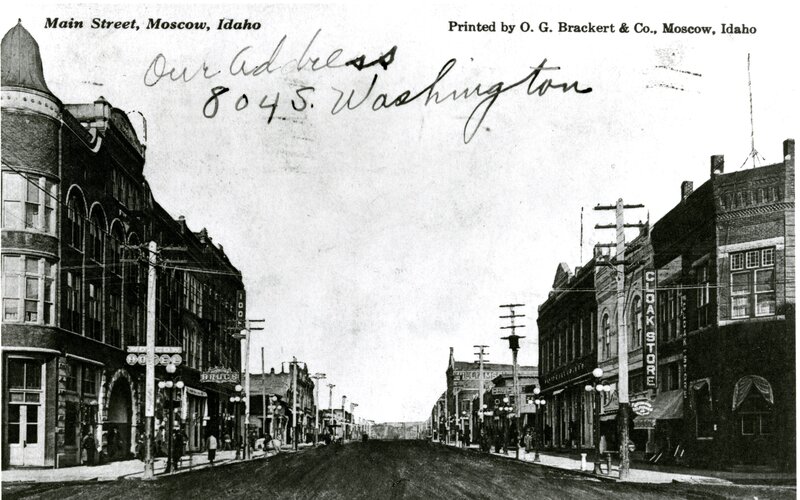 Main Street, Moscow, Idaho
Printed by O. G. Brackert & Co., Moscow, Idaho
Our Address
804 S. Washington
HOTEL
DRUGS
CLOAK STORE